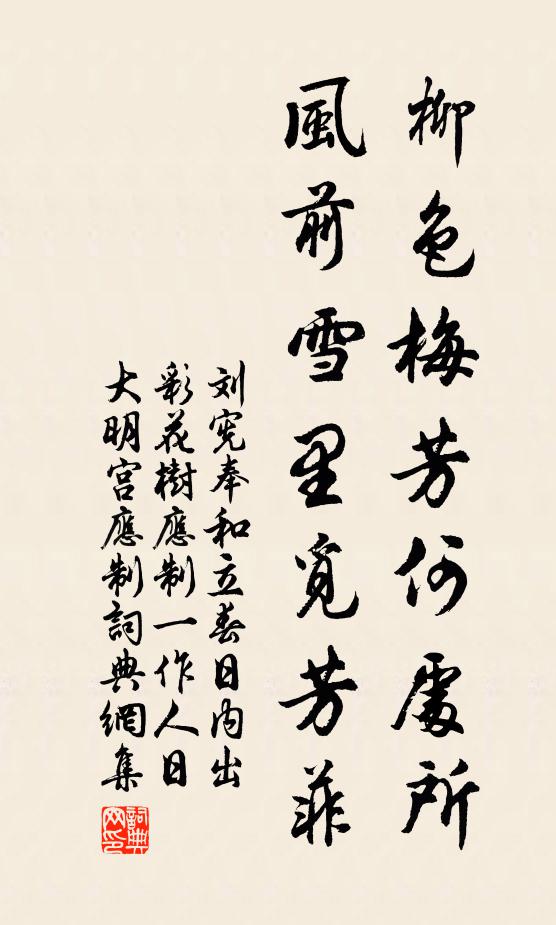 柳色梅芳何處所
風前雪里覓芳菲
刘宪奉和立春日内出
彩花樹應制一作人日
大明宫應制詞典網集
詞典网印